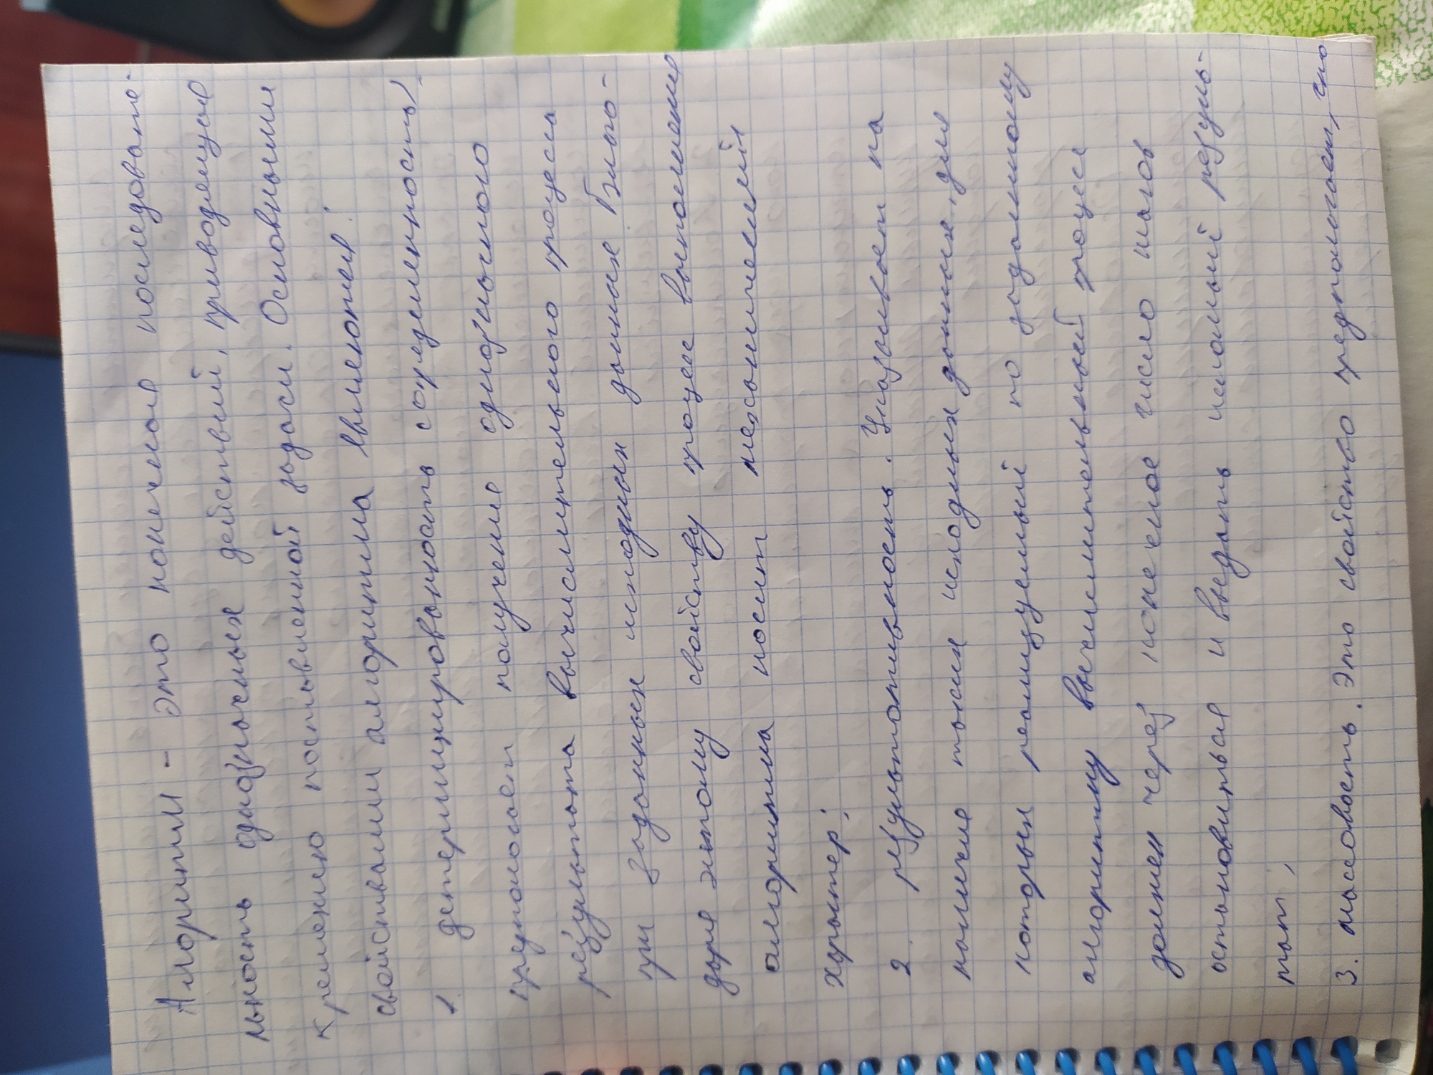 Алгоритм – это конечная последовате-
льность однозначных действий, приводящая
к решению поставленной задаси. Основными
свойствами алгоритма являются:
1. детерминированность (определенность).
предпологает получение однозначного
результата вычислительного процесса
при заданных исходных данных Благо-
даря этому свойству процесс выполнения
алгоритма носит механический
характер;
2. результативность. Указывает на
наличие таких исходных данных, для
которых реализуемый по заданному
алгоритму вычислительный процесс
должен через конечное число шагов
остановиться и выдать искомый резуль-
тат;
3. массовость. Это свойство предпологает, что